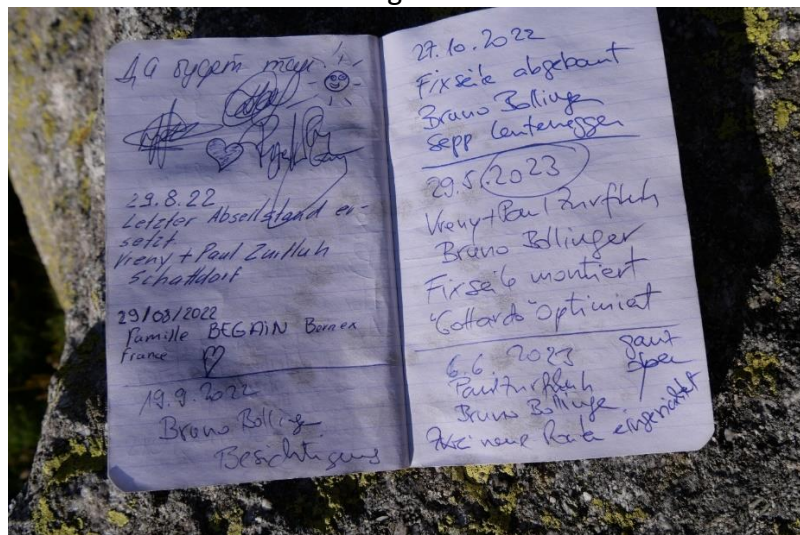 Да будет так
29.8.22
Letzter Abseilstand er-
setzt
Vreny + Paul Zurfluh
Schattdorf
29/08/2022
Famille BEGAIN
France
19.9.2022
Bruno Bollinger
Besichtigung
27.10.2022
Fixseile abgebaut
Bruno Bollinger
Sepp
29.5.2023
Vreny + Paul Zurfluh
Bruno Bollinger
Fixseile montiert
"Gottardo" optimiert
6.6.2023
Paul Zurfluh
Bruno Bollinger
Zwei neue Routen eingerichtet
ganz